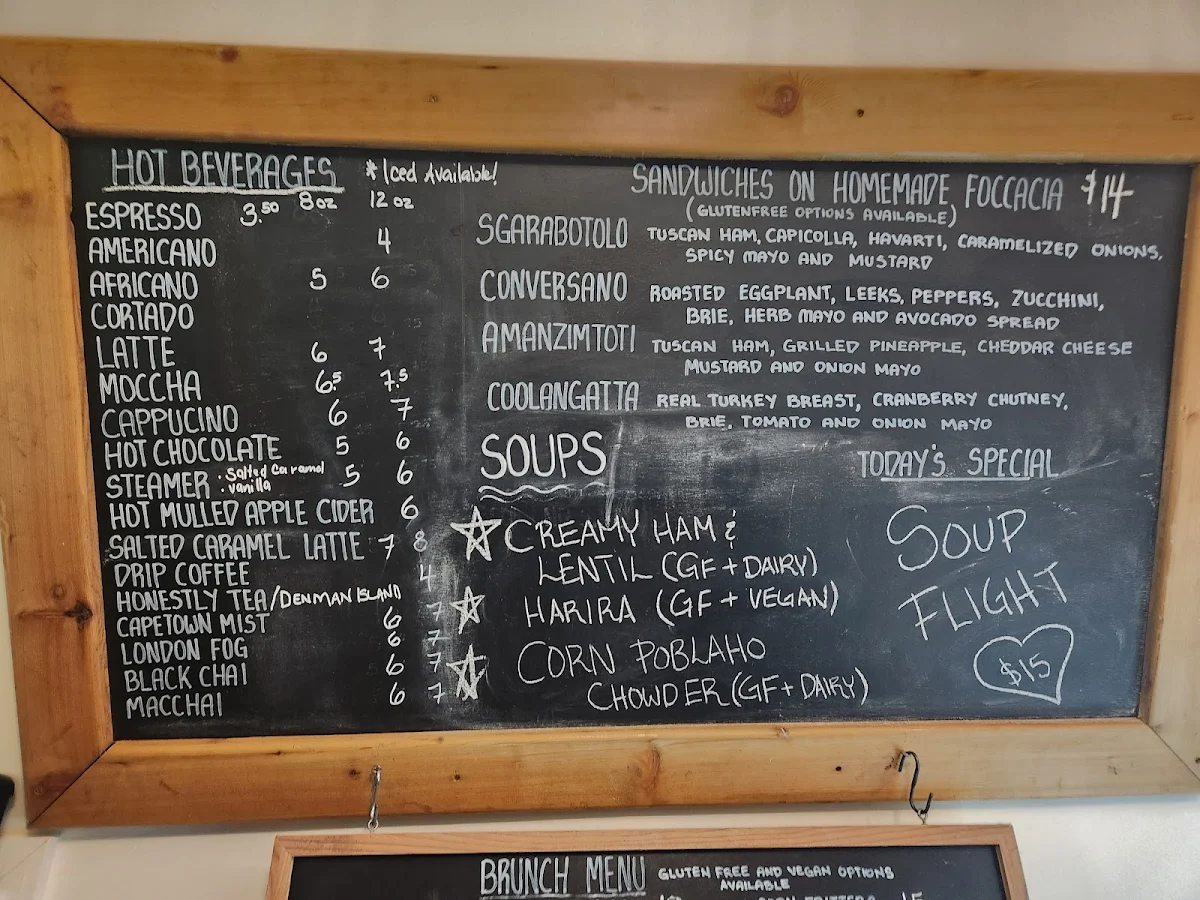 HOT BEVERAGES * Iced Available!
8oz 12 oz
ESPRESSO 3.50
AMERICANO 4
AFRICANO 5 6
CORTADO
LATTE 6 7
MOCCHA 6.5 7.5
CAPPUCINO 6 7
HOT CHOCOLATE 5 6
STEAMER : Salted Caramel 5 6
: vanilla
HOT MULLED APPLE CIDER 6
SALTED CARAMEL LATTE 7 8
DRIP COFFEE 4
HONESTLY TEA/DENMAN ISLAND
CAPETOWN MIST 6 7
LONDON FOG 6 7
BLACK CHAI 6 7
MACCHAI 6 7
SANDWICHES ON HOMEMADE FOCCACIA $14
(GLUTENFREE OPTIONS AVAILABLE)
SGARABOTOLO TUSCAN HAM, CAPICOLLA, HAVARTI, CARAMELIZED ONIONS,
SPICY MAYO AND MUSTARD
CONVERSANO ROASTED EGGPLANT, LEEKS, PEPPERS, ZUCCHINI,
BRIE, HERB MAYO AND AVOCADO SPREAD
AMANZIMTOTI TUSCAN HAM, GRILLED PINEAPPLE, CHEDDAR CHEESE
MUSTARD AND ONION MAYO
COOLANGATTA REAL TURKEY BREAST, CRANBERRY CHUTNEY,
BRIE, TOMATO AND ONION MAYO
SOUPS
CREAMY HAM &
LENTIL (GF + DAIRY)
HARIRA (GF + VEGAN)
CORN POBLAHO
CHOWDER (GF + DAIRY)
TODAY'S SPECIAL
SOUP
FLIGHT
$15
BRUNCH MENU GLUTEN FREE AND VEGAN OPTIONS
AVAILABLE